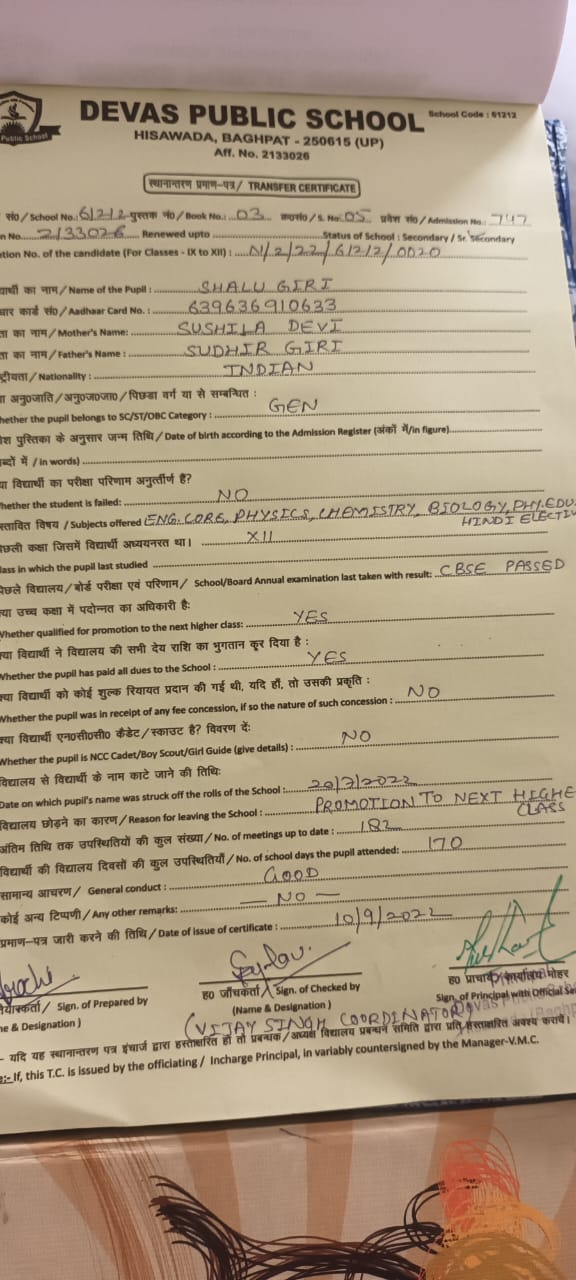 Public School
DEVAS PUBLIC SCHOOL
School Code : 61212
HISAWADA, BAGHPAT - 250615 (UP)
Aff. No. 2133026
स्थानान्तरण प्रमाण-पत्र/ TRANSFER CERTIFICATE
सं0/ School No.: 61212 पुस्तक सं0/ Book No.: 03 क्र0सं0/ S. No. 05 प्रवेश सं0/ Admission No.: 747
n No. 2133026 Renewed upto Status of School : Secondary / Sr. Secondary
tion No. of the candidate (For Classes - IX to XII) : N/2/22/61212/0020
यार्थी का नाम/ Name of the Pupil : SHALU GIRI
धार कार्ड सं0/ Aadhaar Card No. : 639636910633
ता का नाम/ Mother's Name: SUSHILA DEVI
ता का नाम/ Father's Name : SUDHIR GIRI
ट्रीयता/ Nationality : INDIAN
ा अनु0जाति/ अनु0ज0जा0/ पिछडा वर्ग या से सम्बन्धित :
hether the pupil belongs to SC/ST/OBC Category : GEN
ेश पुस्तिका के अनुसार जन्म तिथि/ Date of birth according to the Admission Register (अंकों में/in figure)
ब्दों में / in words)
या विद्यार्थी का परीक्षा परिणाम अनुर्त्तीण है?
hether the student is failed: NO
स्तावित विषय / Subjects offered ENG. CORE, PHYSICS, CHEMISTRY, BIOLOGY, PHY. EDU.
HINDI ELECTIV
छली कक्षा जिसमें विद्यार्थी अध्ययनरत था। XII
lass in which the pupil last studied
पिछले विद्यालय/ बोर्ड परीक्षा एवं परिणाम/ School/Board Annual examination last taken with result: CBSE PASSED
या उच्च कक्षा में पदोन्नत का अधिकारी है:
Whether qualified for promotion to the next higher class: YES
क्या विद्यार्थी ने विद्यालय की सभी देय राशि का भुगतान कर दिया है :
Whether the pupil has paid all dues to the School : YES
क्या विद्यार्थी को कोई शुल्क रियायत प्रदान की गई थी, यदि हाँ, तो उसकी प्रकृति :
Whether the pupil was in receipt of any fee concession, if so the nature of such concession : NO
क्या विद्यार्थी एन0सी0सी0 कैडेट/ स्काउट है? विवरण दें:
Whether the pupil is NCC Cadet/Boy Scout/Girl Guide (give details) : NO
विद्यालय से विद्यार्थी के नाम काटे जाने की तिथि:
Date on which pupil's name was struck off the rolls of the School: 20/7/2022
विद्यालय छोड़ने का कारण/ Reason for leaving the School : PROMOTION TO NEXT HIGHE
CLASS
अंतिम तिथि तक उपस्थितियों की कुल संख्या/ No. of meetings up to date : 182
विद्यार्थी की विद्यालय दिवसों की कुल उपस्थितियाँ/ No. of school days the pupil attended: 170
सामान्य आचरण/ General conduct : GOOD
कोई अन्य टिप्पणी/ Any other remarks: — NO —
प्रमाण-पत्र जारी करने की तिथि/ Date of issue of certificate : 10/9/2022
/ Sign. of Prepared by
ह0 जाँचकर्ता/ Sign. of Checked by
ह0 प्राचार्य/ कार्यालय मोहर
e & Designation )
(Name & Designation )
Sign. of Principal with Official Se
(VIJAY SINGH COORDINATOR)
- यदि यह स्थानान्तरण पत्र इंचार्ज द्वारा हस्ताक्षरित हो तो प्रबन्धक/ अध्यक्ष विद्यालय प्रबन्धन समिति द्वारा प्रति हस्ताक्षरित अवश्य करायें।
e:- If, this T.C. is issued by the officiating / Incharge Principal, in variably countersigned by the Manager-V.M.C.